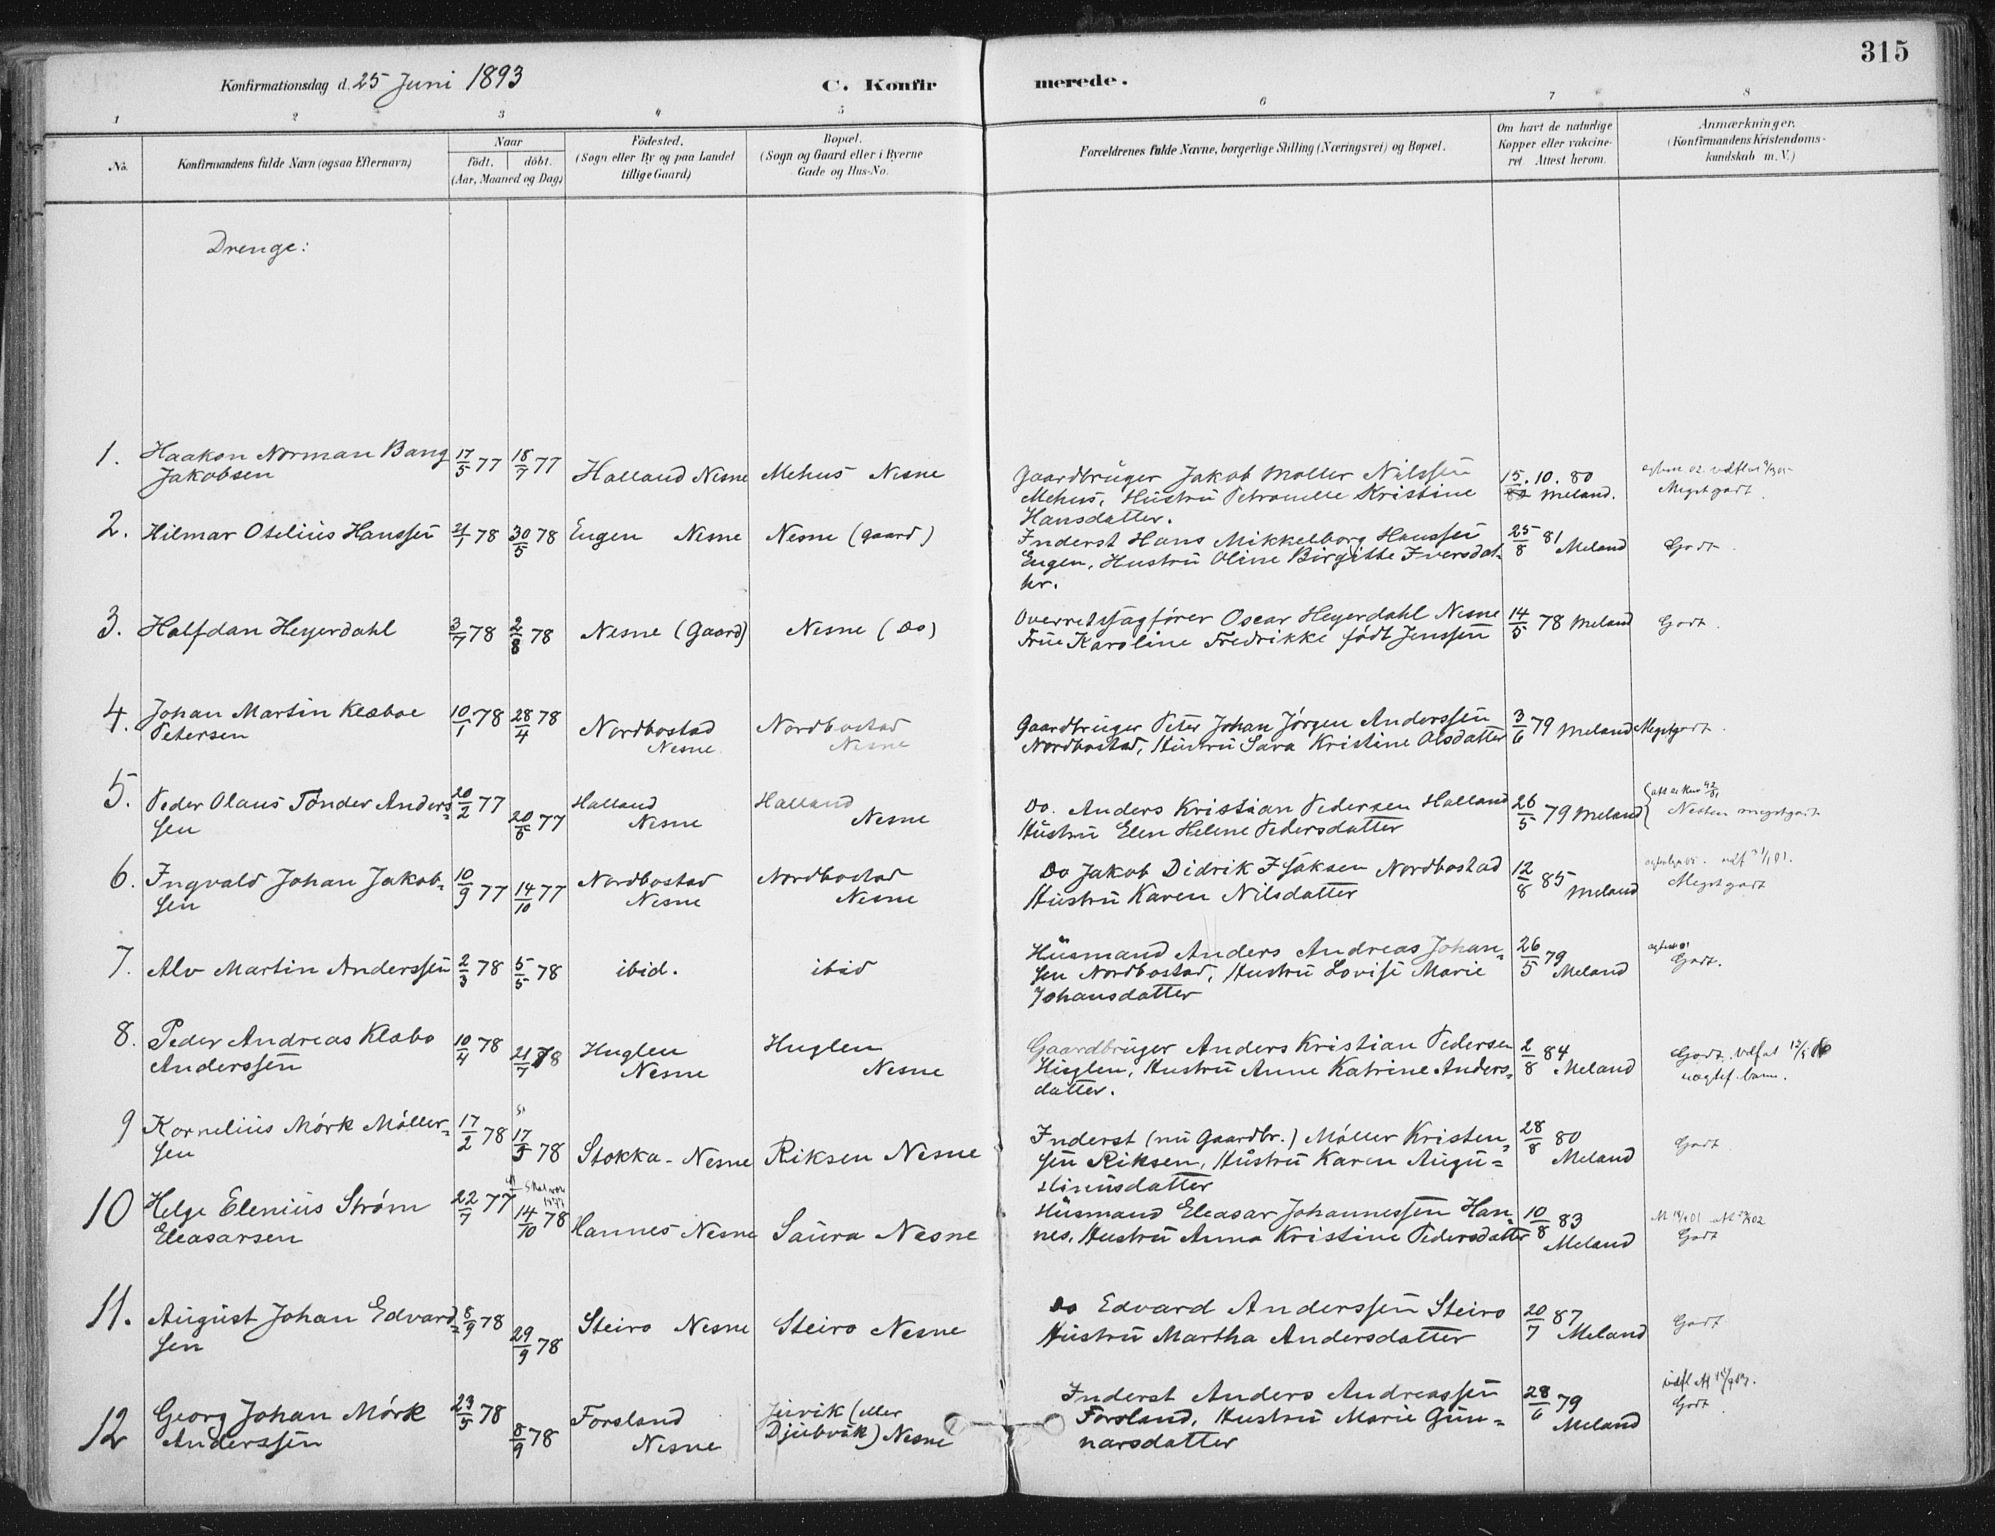 315
Konfirmationsdag d. 25 Juni 1893
C. Konfirmerede.
1 2 3 4 5 6 7 8
No.
Konfirmandens fulde Navn (ogsaa Efternavn)
Naar
födt. döbt.
(Aar, Maaned og Dag)
Födested.
(Sogn eller By og paa Landet
tillige Gaard)
Bopæl.
(Sogn og Gaard eller i Byerne
Gade og Hus-No.
Forældrenes fulde Navne, borgerlige Stilling (Næringsvei) og Bopæl.
Om havt de naturlige
Kopper eller vakcine-
ret. Attest herom.
Anmærkninger.
(Konfirmandens Kristendoms-
kundskab m. V.)
Drenge:
1. Haakon Norman Bang
Jakobsen
17/5 77 18/7 77
Halland Nesne
Mehus Nesne
Gaardbruger Jakob Møller Nilssen
Mehus, Hustru Petronelle Kristine
Hansdatter.
15. 10. 80
Meland.
Megetgodt.
2. Hilmar Otelius Hanssen
21/1 78 30/5 78
Eugen Nesne
Nesne (gaard)
Inderst Hans Mikkelborg Hanssen
Eugen, Hustru Oline Birgitte Iversdat-
ter.
25/8 81 Meland
Godt.
3. Halfdan Heyerdahl
3/7 78 2/8 78
Nesne (Gaard)
Nesne (Do)
Overretssagfører Oscar Heyerdahl Nesne
Frue Karoline Fredrikke født Jenssen
14/5 78 Meland
Godt.
4. Johan Martin Klæboe
Petersen
10/1 78 28/4 78
Nordbostad
Nesne.
Nordbostad
Nesne
Gaardbruger Peter Johan Jörgen Anderssen
Nordbostad, Hustru Sara Kristine Olsdatter
3/6 79 Meland
Megetgodt.
5. Peder Olaus Tönder Anders-
sen
20/2 77 20/5 77
Halland
Nesne
Halland
Nesne
Do. Anders Kristian Pedersen Halland
Hustru Elen Helene Pedersdatter
26/5 79 Meland
Nesten megetgodt
6. Ingvald Johan Jakob-
sen
10/9 77 14/10 77
Nordbostad
Nesne
Nordbostad
Nesne
Do Jakob Didrik Isaksen Nordbostad
Hustru Karen Nilsdatter
12/8 85
Meland
Megetgodt
7. Alv Martin Anderssen
2/3 78 5/5 78
ibid.
ibid
Husmand Anders Andreas Johan-
sen Nordbostad, Hustru Lovise Marie
Johansdatter
26/5 79
Meland
Godt.
8. Peder Andreas Klæbo
Anderssen
10/4 78 21/7 78
Huglen
Nesne
Huglen
Nesne
Gaardbruger Anders Kristian Pedersen
Huglen, Hustru Anne Katrine Anders-
datter.
2/8 84
Meland
Godt.
9 Kornelius Mörk Möller-
sen
17/2 78 17/5 78
Stokka - Nesne
Riksen Nesne
Inderst (nu Gaardbr.) Möller Kristen-
sen Riksen, Hustru Karen Augu-
stinusdatter
28/8 80
Meland
Godt
10 Helge Elenius Ström
Eleasarsen
22/7 77 14/10 78
Hannes Nesne
Saura Nesne
Husmand Eleasar Johannessen Han-
nes, Hustru Anna Kristine Pedersdatter
10/8 83
Meland
Godt
11. August Johan Edvard-
sen
8/9 78 29/9 78
Steiro Nesne
Steiro Nesne
Do Edvard Anderssen Steiro
Hustru Martha Andersdatter
20/7 87
Meland
Godt
12 Georg Johan Mörk
Anderssen
23/5 78 8/9 78
Forsland
Nesne
Juvik (eller
Djubvik) Nesne
Inderst Anders Andreassen
Forsland, Hustru Marie Gun-
narsdatter
28/6 79
Meland
Godt.